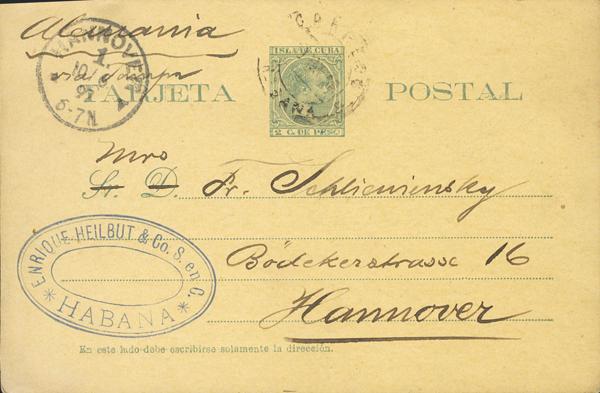 Alemania
via Tampa
HANNOVER
1.
6-7N
CORREOS
HABANA
ISLA DE CUBA
2 C. DE PESO
TARJETA POSTAL
Mrs
Sr. D. Fr. Schlieminsky
Bödekerstrasse 16
Hannover
ENRIQUE HEILBUT & Co. S. en C.
* HABANA *
En este lado debe escribirse solamente la dirección.